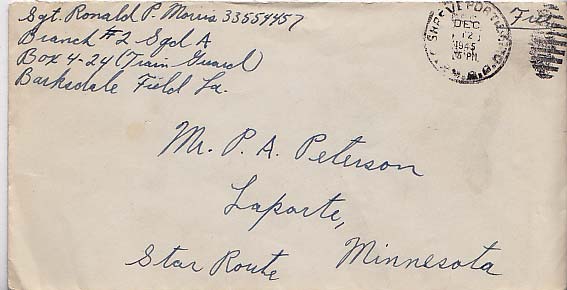 Sgt. Ronald P. Morris 33554457
Branch #2 Sqd A
Box 4-24 (Train Guard)
Barksdale Field La.
SHREVEPORT
DEC
12
1945
PM
Free
Mr. P. A. Peterson
Laporte,
Star Route Minnesota